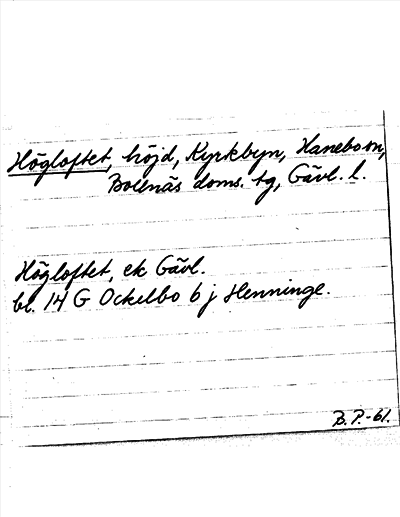 Högloftet, höjd, Kyrkbyn, Hanebo sn,
Bollnäs doms. tg, Gävl. l.
Högloftet, ek Gävl.
bl. 14 G Ockelbo 6 j Henninge.
B. P. -61.